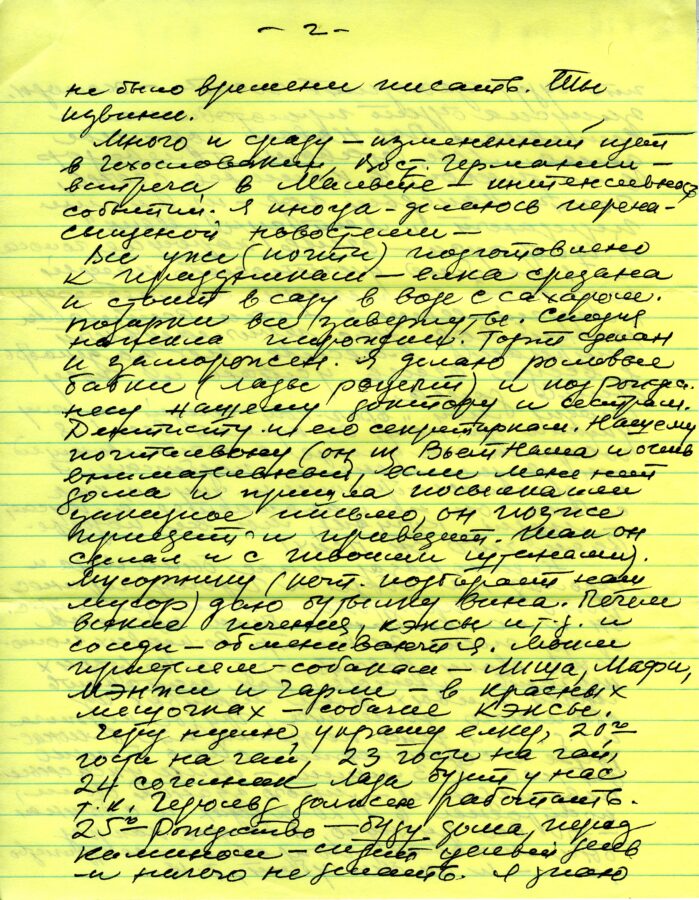 - 2 -
не было времени писать. Ты
извини.
Много и сразу – изменений идет
в Чехословакии, Вост. Германии –
встреча в Мальте – интенсивность
событий. Я иногда – делаюсь перена-
сыщеной новостями –
Все уже (почти) подготовлено
к праздникам – елка срезана
и стоит в саду в воде с сахаром.
подарки все завернуты. Сегодня
пирожки. Торт сделан
и заморожен. Я делаю ромовые
бабки (Лады рецепт) и под
несу нашему доктору и сестрам.
Дентисту и его секретаркам. Нашему
почтальону (он из Вьетнама и очень
внимательный, если меня нет
дома и пришла посылка или
заказное письмо, он позже
приедет и привезет. Так он
сделал и с твоими
мусорнику (кот. подбирает наш
мусор) даю бутылку вина. Печем
всякие печения, кэксы и т.д. и
соседи – обмениваются. Моим
приятелям – собакам – Миша, Мафи,
Мэнжи и Чарли – в красных
мешочках – собачие кэксы.
Чезу неделю украшу елку, 20го
гости на чай, 23 гости на чай,
24 сочельник Лада будет у нас
т.к. должен работать.
25го Рождество – буду дома, перед
камином – сидеть целый день
и ничего не делать. Я знаю